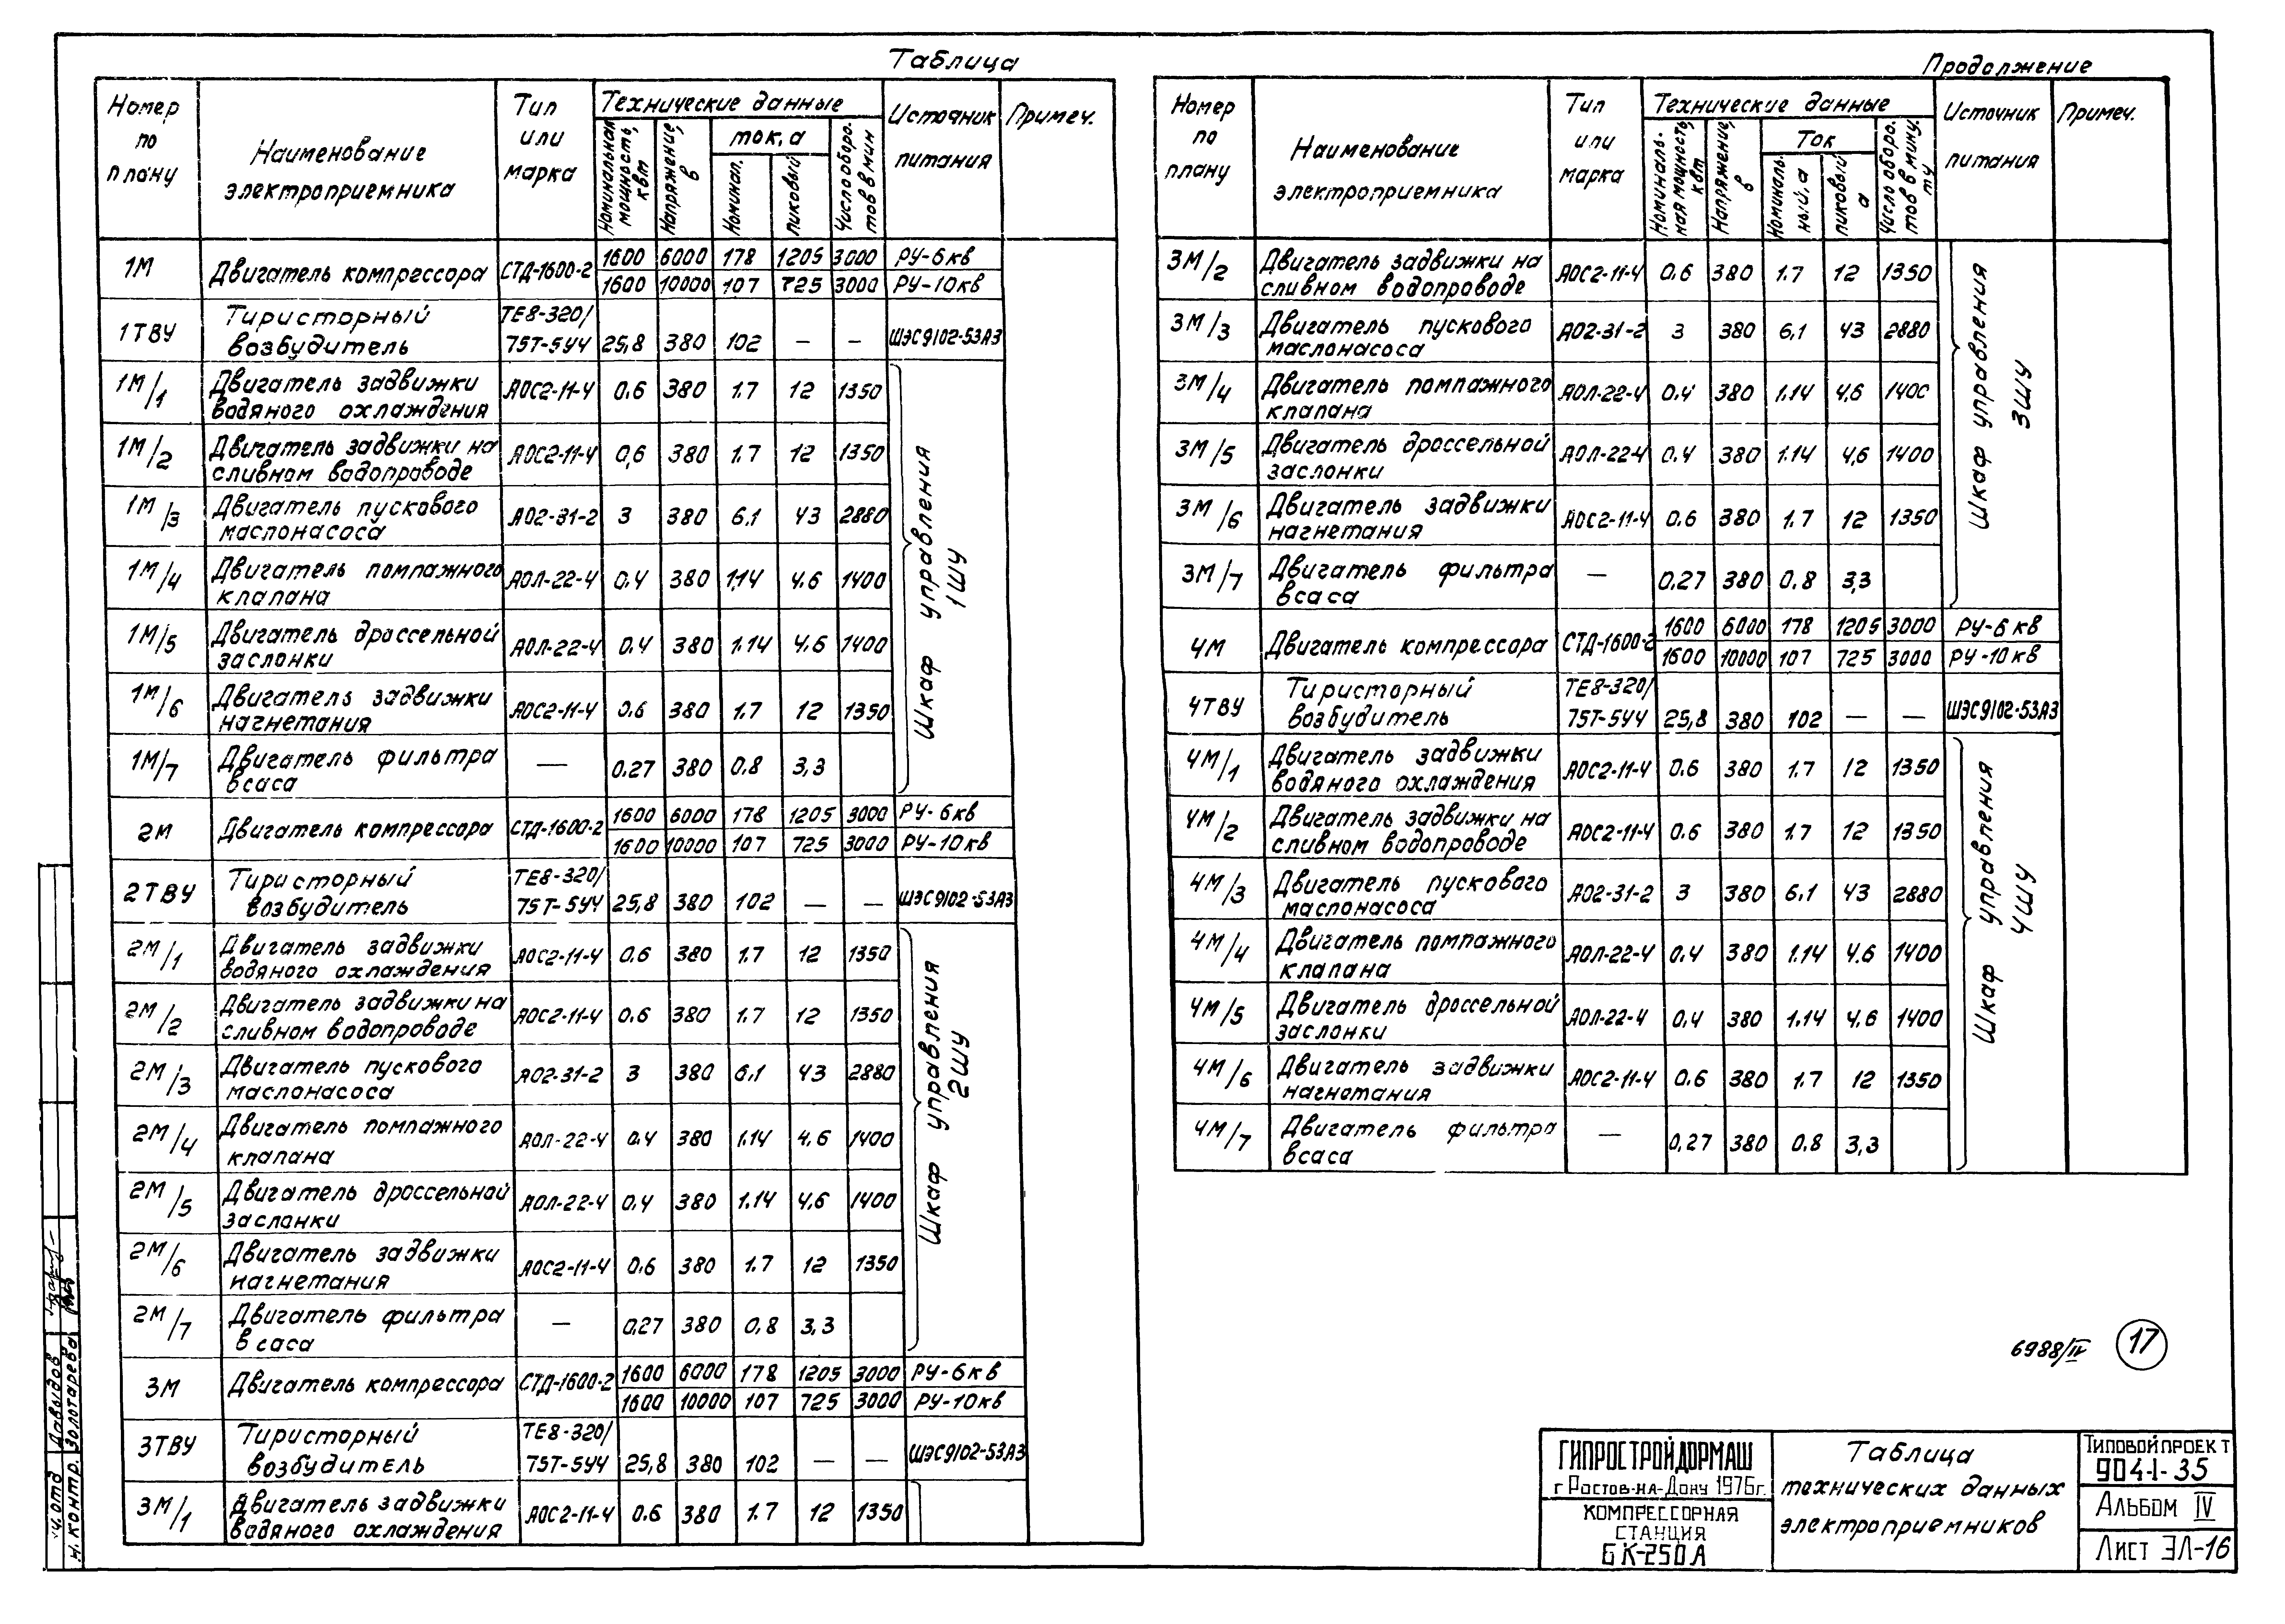 Таблица
Номер по плану | Наименование электроприемника | Тип или марка | Технические данные | Источник питания | Примеч.
Номинальная мощность, квт | Напряжение, в | ток, а | Число оборотов в мин
Номинал. | пиковый
1М | Двигатель компрессора | СТД-1600-2 | 1600 | 6000 | 178 | 1205 | 3000 | РУ-6кв
1600 | 10000 | 107 | 725 | 3000 | РУ-10кв
1ТВУ | Тиристорный возбудитель | ТЕ8-320/75Т-5УЧ | 25,8 | 380 | 102 | — | — | ШЭС9102-53А3
1М/1 | Двигатель задвижки водяного охлаждения | АОС2-11-4 | 0.6 | 380 | 1.7 | 12 | 1350
1М/2 | Двигатель задвижки на сливном водопроводе | АОС2-11-4 | 0,6 | 380 | 1.7 | 12 | 1350
1М/3 | Двигатель пускового маслонасоса | АО2-31-2 | 3 | 380 | 6.1 | 43 | 2880
1М/4 | Двигатель помпажного клапана | АОЛ-22-4 | 0.4 | 380 | 1,14 | 4.6 | 1400
1М/5 | Двигатель дроссельной заслонки | АОЛ-22-4 | 0.4 | 380 | 1.14 | 4.6 | 1400
1М/6 | Двигатель задвижки нагнетания | АОС2-11-4 | 0.6 | 380 | 1.7 | 12 | 1350
1М/7 | Двигатель фильтра всаса | — | 0.27 | 380 | 0.8 | 3,3
Шкаф управления 1ШУ
2М | Двигатель компрессора | СТД-1600-2 | 1600 | 6000 | 178 | 1205 | 3000 | РУ-6кв
1600 | 10000 | 107 | 725 | 3000 | РУ-10кв
2ТВУ | Тиристорный возбудитель | ТЕ8-320/75Т-5УЧ | 25,8 | 380 | 102 | — | — | ШЭС9102-53А3
2М/1 | Двигатель задвижки водяного охлаждения | АОС2-11-4 | 0.6 | 380 | 1.7 | 12 | 1350
2М/2 | Двигатель задвижки на сливном водопроводе | АОС2-11-4 | 0.6 | 380 | 1.7 | 12 | 1350
2М/3 | Двигатель пускового маслонасоса | АО2-31-2 | 3 | 380 | 6.1 | 43 | 2880
2М/4 | Двигатель помпажного клапана | АОЛ-22-4 | 0.4 | 380 | 1.14 | 4.6 | 1400
2М/5 | Двигатель дроссельной заслонки | АОЛ-22-4 | 0,4 | 380 | 1.14 | 4,6 | 1400
2М/6 | Двигатель задвижки нагнетания | АОС2-11-4 | 0.6 | 380 | 1.7 | 12 | 1350
2М/7 | Двигатель фильтра всаса | — | 0,27 | 380 | 0,8 | 3,3
Шкаф управления 2ШУ
3М | Двигатель компрессора | СТД-1600-2 | 1600 | 6000 | 178 | 1205 | 3000 | РУ-6кв
1600 | 10000 | 107 | 725 | 3000 | РУ-10кв
3ТВУ | Тиристорный возбудитель | ТЕ8-320/75Т-5УЧ | 25,8 | 380 | 102 | — | — | ШЭС9102-53А3
3М/1 | Двигатель задвижки водяного охлаждения | АОС2-11-4 | 0.6 | 380 | 1.7 | 12 | 1350
Продолжение
Номер по плану | Наименование электроприемника | Тип или марка | Технические данные | Источник питания | Примеч.
Номинальная мощность, квт | Напряжение, в | Ток | Число оборотов в минуту
Номинальный, а | пиковый а
3М/2 | Двигатель задвижки на сливном водопроводе | АОС2-11-4 | 0.6 | 380 | 1.7 | 12 | 1350
3М/3 | Двигатель пускового маслонасоса | АО2-31-2 | 3 | 380 | 6,1 | 43 | 2880
3М/4 | Двигатель помпажного клапана | АОЛ-22-4 | 0.4 | 380 | 1.14 | 4,6 | 1400
3М/5 | Двигатель дроссельной заслонки | АОЛ-22-4 | 0.4 | 380 | 1.14 | 4,6 | 1400
3М/6 | Двигатель задвижки нагнетания | АОС2-11-4 | 0.6 | 380 | 1.7 | 12 | 1350
3М/7 | Двигатель фильтра всаса | — | 0.27 | 380 | 0.8 | 3,3
Шкаф управления 3ШУ
4М | Двигатель компрессора | СТД-1600-2 | 1600 | 6000 | 178 | 1205 | 3000 | РУ-6кв
1600 | 10000 | 107 | 725 | 3000 | РУ-10кв
4ТВУ | Тиристорный возбудитель | ТЕ8-320/75Т-5УЧ | 25,8 | 380 | 102 | — | — | ШЭС9102-53А3
4М/1 | Двигатель задвижки водяного охлаждения | АОС2-11-4 | 0.6 | 380 | 1.7 | 12 | 1350
4М/2 | Двигатель задвижки на сливном водопроводе | АОС2-11-4 | 0.6 | 380 | 1.7 | 12 | 1350
4М/3 | Двигатель пускового маслонасоса | АО2-31-2 | 3 | 380 | 6.1 | 43 | 2880
4М/4 | Двигатель помпажного клапана | АОЛ-22-4 | 0.4 | 380 | 1.14 | 4.6 | 1400
4М/5 | Двигатель дроссельной заслонки | АОЛ-22-4 | 0,4 | 380 | 1.14 | 4,6 | 1400
4М/6 | Двигатель задвижки нагнетания | АОС2-11-4 | 0.6 | 380 | 1.7 | 12 | 1350
4М/7 | Двигатель фильтра всаса | — | 0,27 | 380 | 0.8 | 3,3
Шкаф управления 4ШУ
6988/IV 17
ГИПРОСТРОЙДОРМАШ
г Ростов-на-Дону 1976г.
КОМПРЕССОРНАЯ
СТАНЦИЯ
6К-250А
Таблица
технических данных
электроприемников
ТИПОВОЙ ПРОЕКТ
904-1-35
АЛЬБОМ IV
ЛИСТ ЭЛ-16
Давыдов
Н. контр. Золотарева